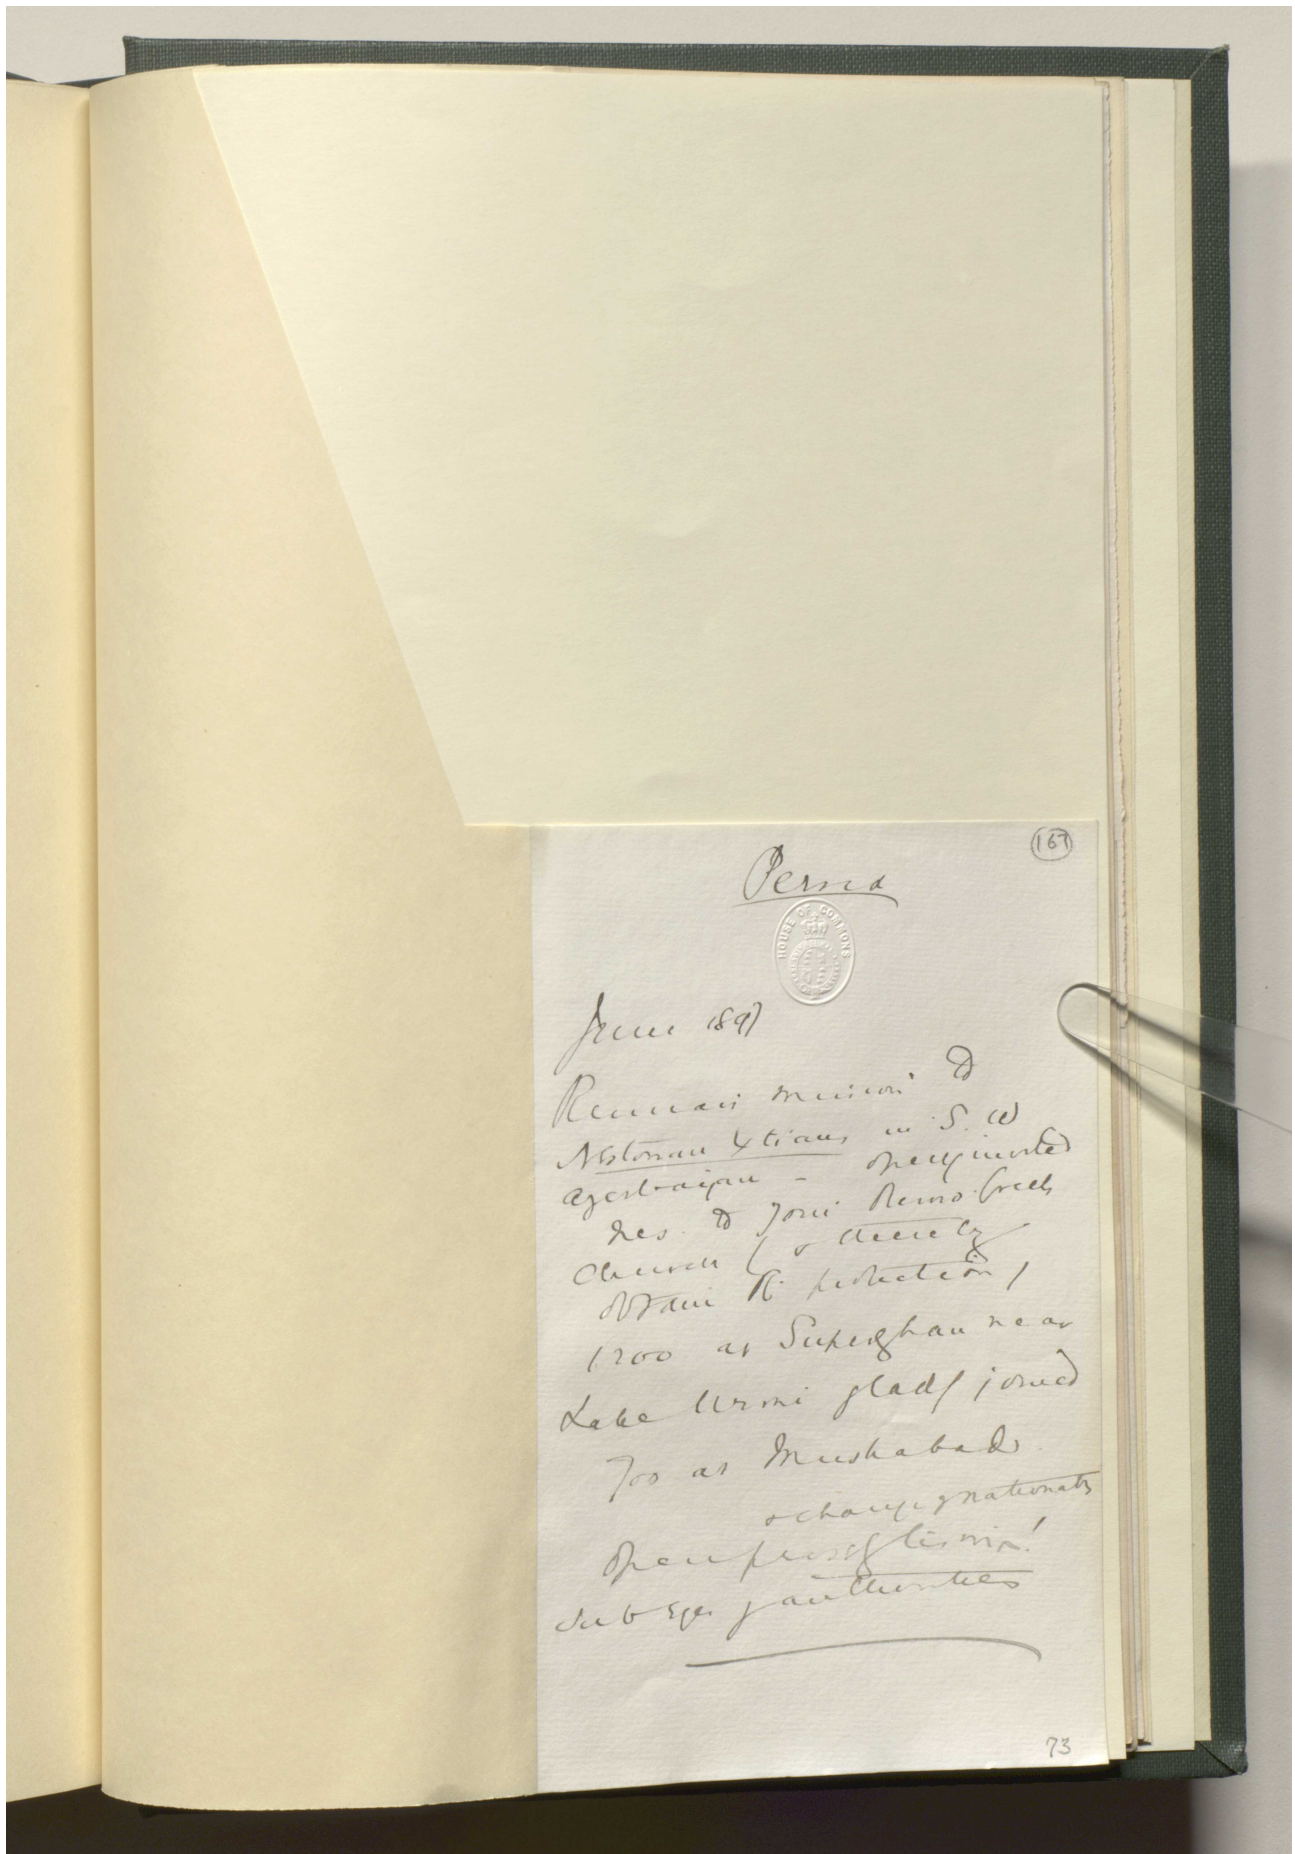 167
Persia
HOUSE OF COMMONS
June 1897
Russian mission to
Nestorian Xtians in S. W
Azerbaijan - openly invited
Nes. to join Russo. Greek
Church (& thereby
obtain R. protection)
1200 at Superghan near
Lake Urmi gladly joined
700 at Mushabad
& change of nationality
Open proselytism!
sub eyes of authorities
73